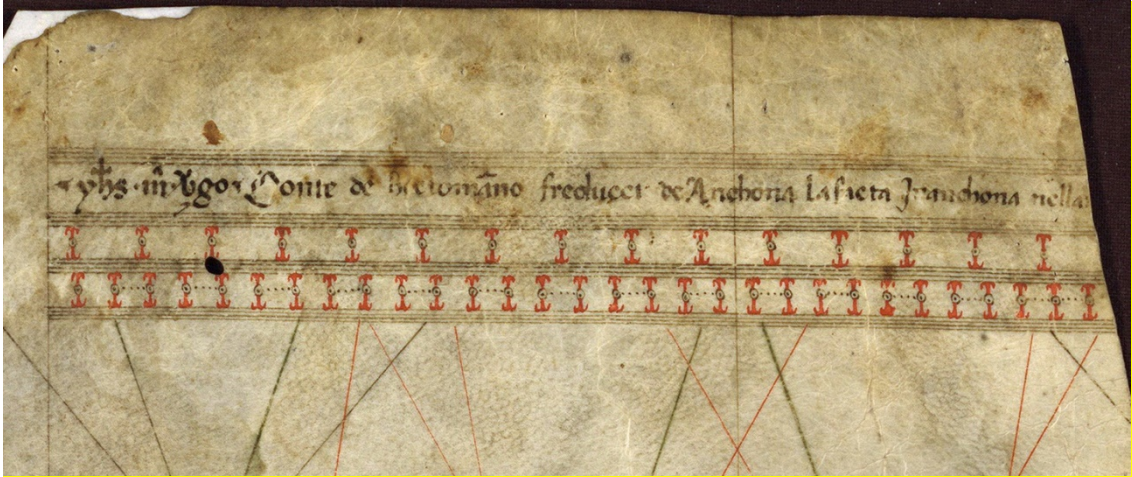 yhs · m̄ · v̄go · Conte de hectomāno freducci de Anchona la facta Jnanchona nella